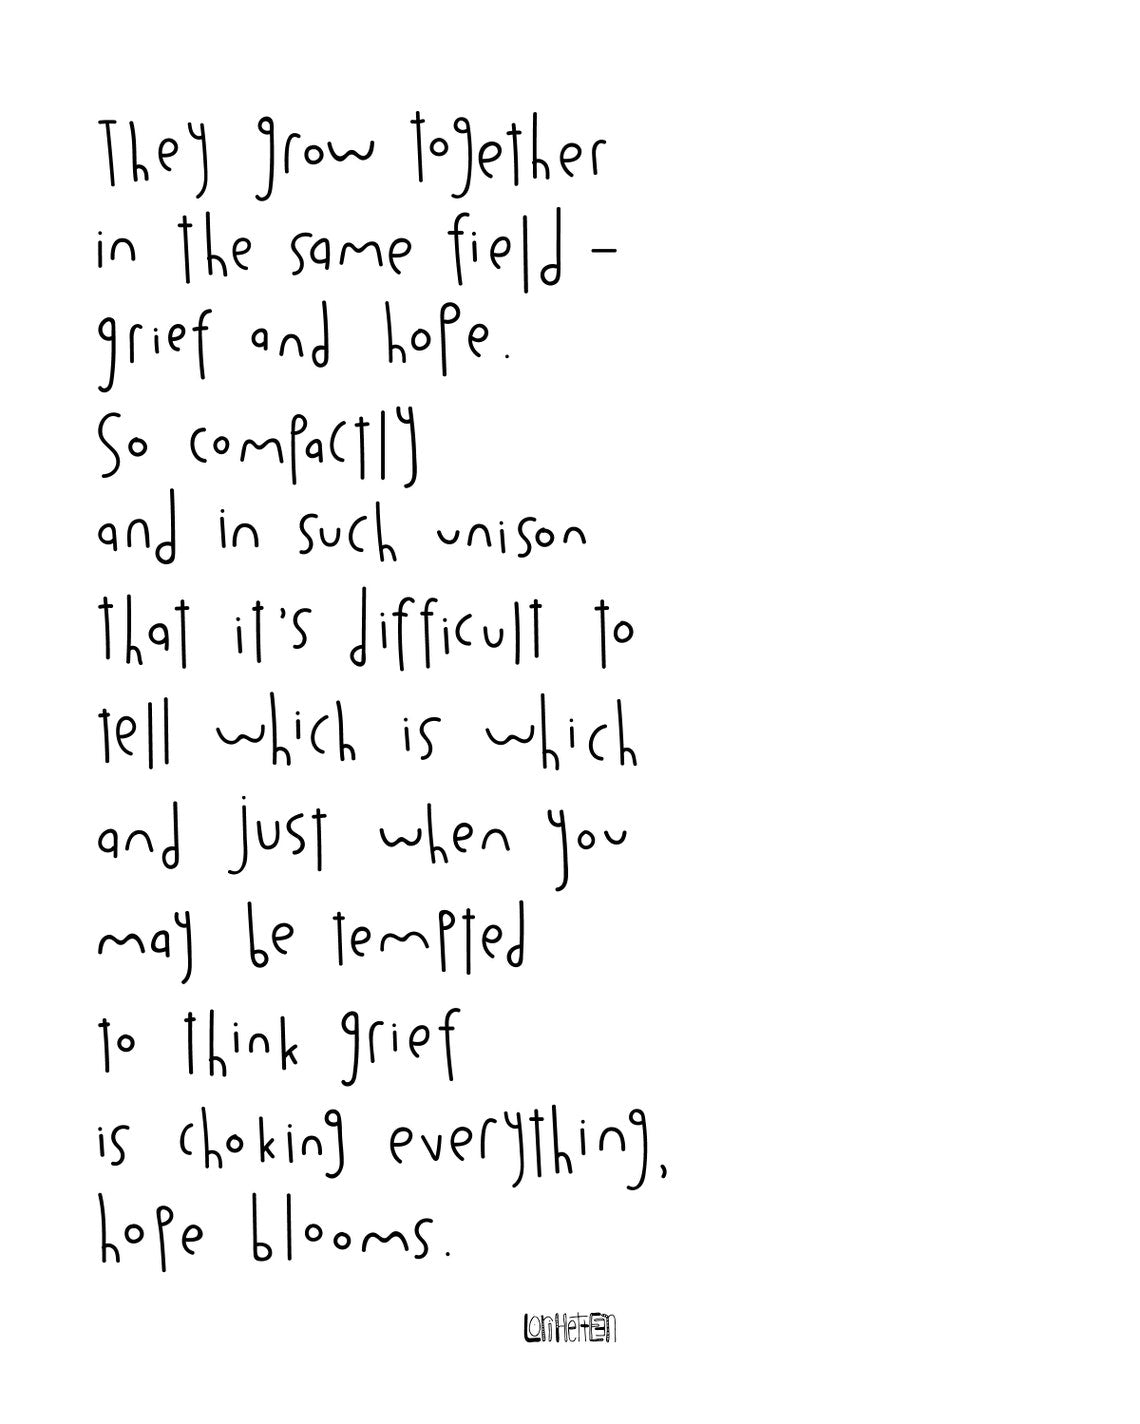 They grow together
in the same field -
grief and hope.
So compactly
and in such unison
that it's difficult to
tell which is which
and just when you
may be tempted
to think grief
is choking everything,
hope blooms.
Lori Hetteen